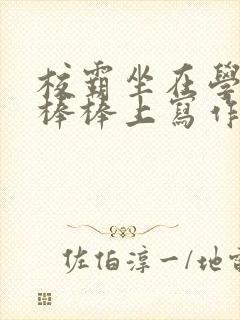 校霸坐在學
棒棒上寫作
佐伯淳一/地